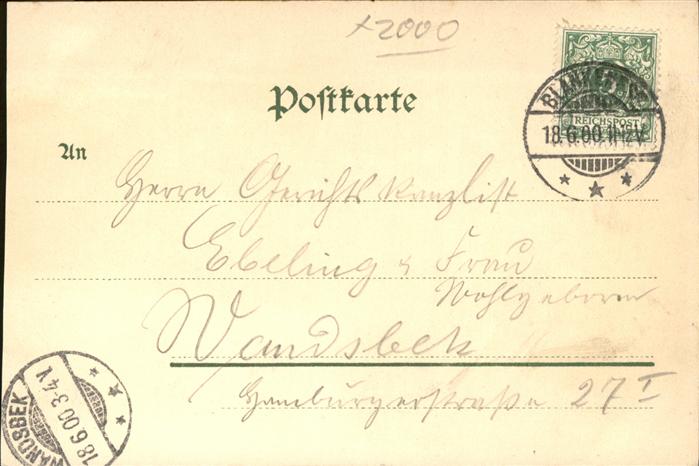 x2000
Postkarte
BLANKENESE
REICHSPOST
18.6.00.11-12V.
An
Herrn Gerichts Kanzlist
Ebeling & Frau
Wohlgeboren
Wandsbek
Hamburgerstraße 27 I
WANDSBEK
18.6.00.3-4V